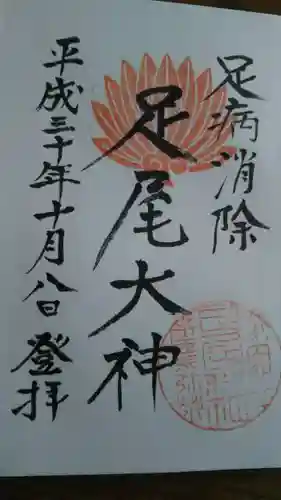 足病消除
足尾大神
平成三十年十月八日 登拝